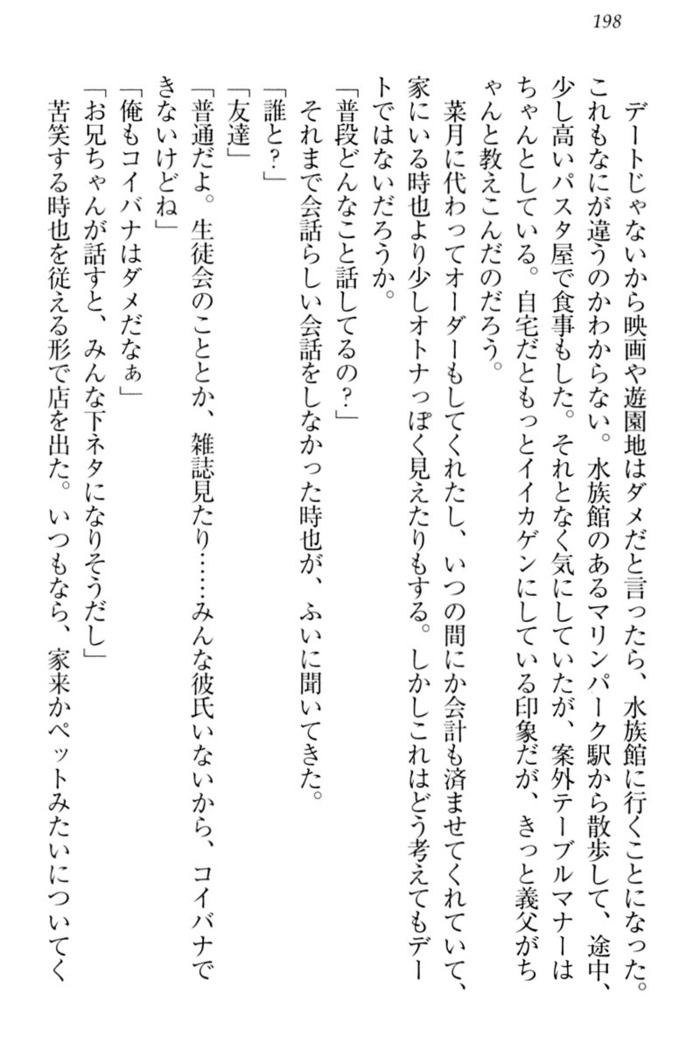 198
デートじゃないから映画や遊園地はダメだと言ったら、水族館に行くことになった。
これもなにが違うのかわからない。水族館のあるマリンパーク駅から散歩して、途中、
少し高いパスタ屋で食事もした。それとなく気にしていたが、案外テーブルマナーは
ちゃんとしている。自宅だともっとイイカゲンにしている印象だが、きっと義父がち
ゃんと教えこんだのだろう。
菜月に代わってオーダーもしてくれたし、いつの間にか会計も済ませてくれていて、
家にいる時也より少しオトナっぽく見えたりもする。しかしこれはどう考えてもデー
トではないだろうか。
「普段どんなこと話してるの？」
それまで会話らしい会話をしなかった時也が、ふいに聞いてきた。
「誰と？」
「友達」
「普通だよ。生徒会のこととか、雑誌見たり……みんな彼氏いないから、コイバナで
きないけどね」
「俺もコイバナはダメだなぁ」
「お兄ちゃんが話すと、みんな下ネタになりそうだし」
苦笑する時也を従える形で店を出た。いつもなら、家来かペットみたいについてく